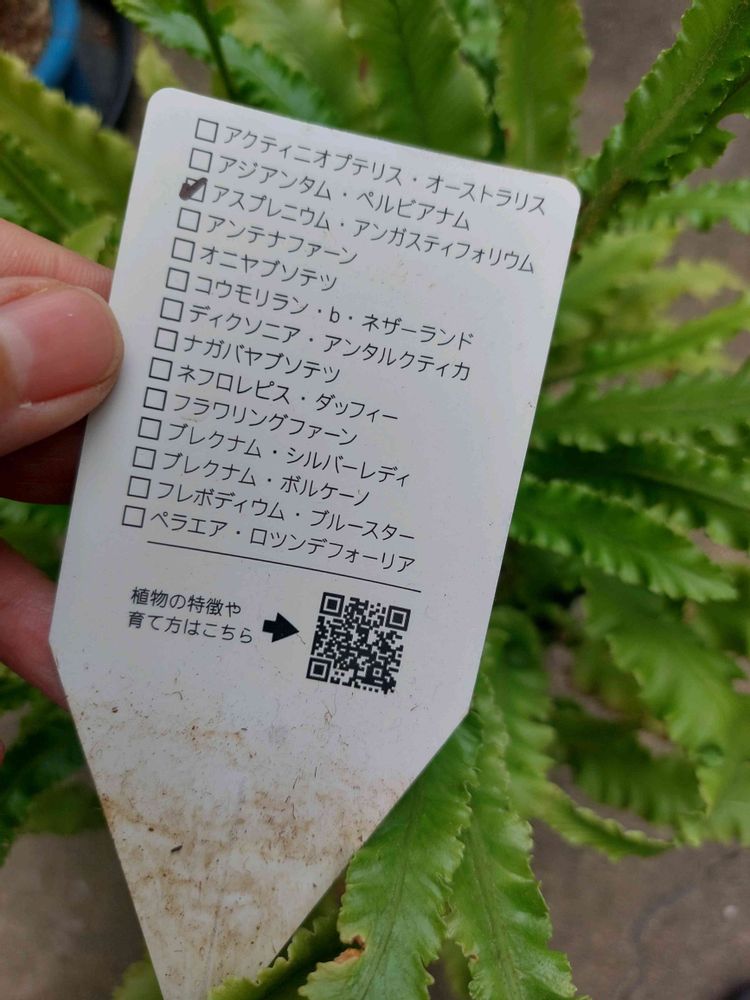 □アクティニオプテリス・オーストラリス
□アジアンタム・ペルビアナム
☑アスプレニウム・アンガスティフォリウム
□アンテナファーン
□オニヤブソテツ
□コウモリラン・b・ネザーランド
□ディクソニア・アンタルクティカ
□ナガバヤブソテツ
□ネフロレピス・ダッフィー
□フラワリングファーン
□ブレクナム・シルバーレディ
□ブレクナム・ボルケーノ
□フレボディウム・ブルースター
□ペラエア・ロツンデフォーリア
植物の特徴や
育て方はこちら